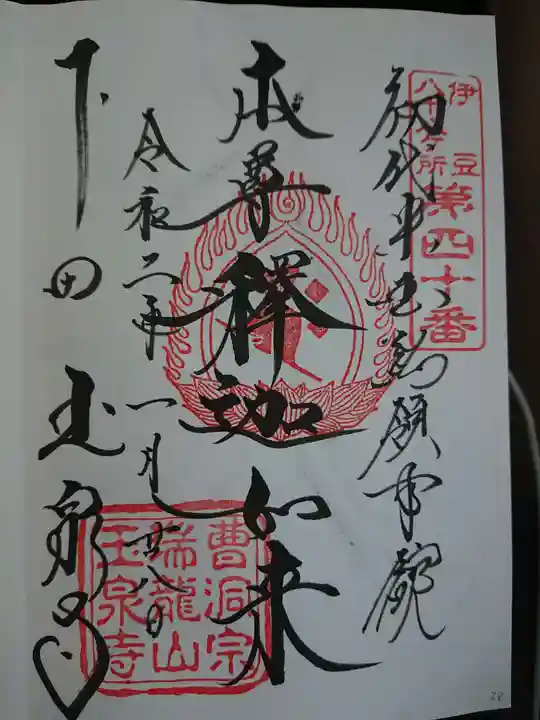 伊豆
八十八ヶ所
第四十番
初代 領事館
本尊釋迦如来
令和二年一月廿八日
下田 玉泉寺
曹洞宗
瑞龍山
玉泉寺